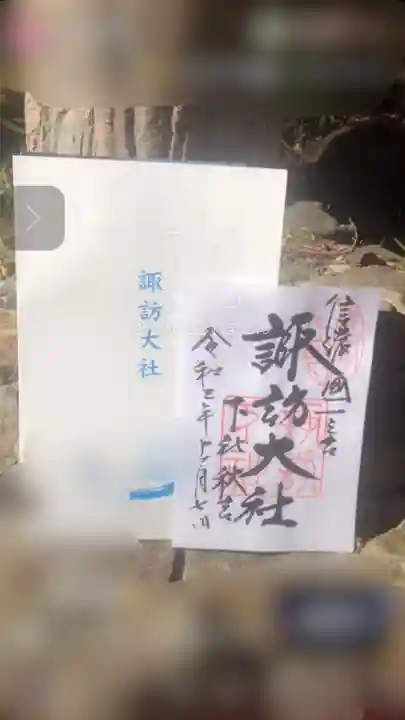 諏訪大社
信濃國一之宮
諏訪大社
下社秋宮
令和三年十一月七日